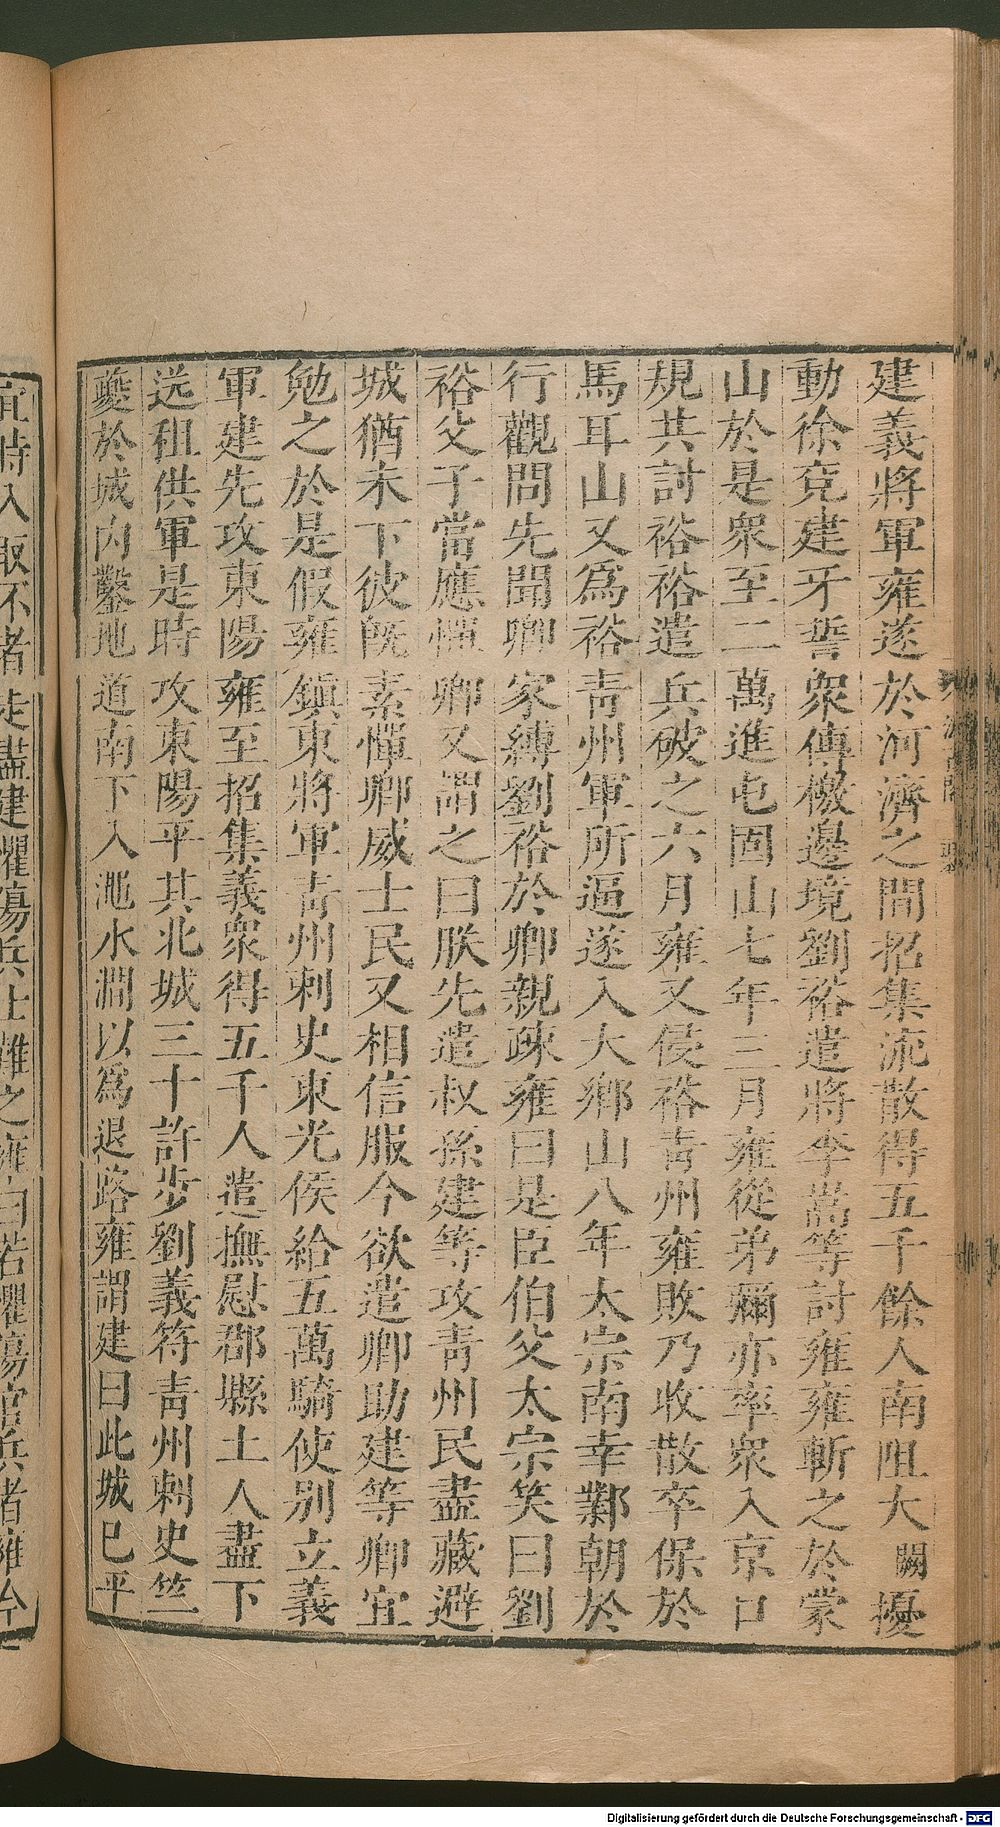 建義將軍雍遂於河濟之間招集流散得五千餘人南阻大闕擾
動徐兗建牙誓眾傳檄邊境劉裕遣將李嵩等討雍雍斬之於蒙
山於是眾至二萬進屯固山七年三月雍從弟彌亦率眾入京口
規共討裕裕遣兵破之六月雍又侵裕靑州雍敗乃收散卒保於
馬耳山又爲裕靑州軍所逼遂入大鄉山八年太宗南幸鄴朝於
行觀問先聞卿家縛劉裕於卿親疎雍曰是臣伯父太宗笑曰劉
裕父子當應憚卿又謂之曰朕先遣叔孫建等攻靑州民盡藏避
城猶未下彼旣素憚卿威士民又相信服今欲遣卿助建等卿宜
勉之於是假雍鎮東將軍靑州刺史東光侯給五萬騎使别立義
軍建先攻東陽雍至招集義眾得五千人遣撫慰郡縣土人盡下
送租供軍是時攻東陽平其北城三十許步劉義符靑州刺史竺
夔於城内鑿地道南下入澠水澗以爲退路雍謂建曰此城已平
宜時入取不者走盡建懼傷兵士難之雍曰若懼傷官兵者雍今